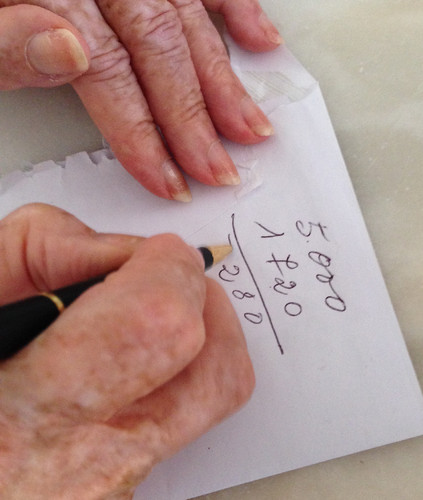 5.000
1720
280